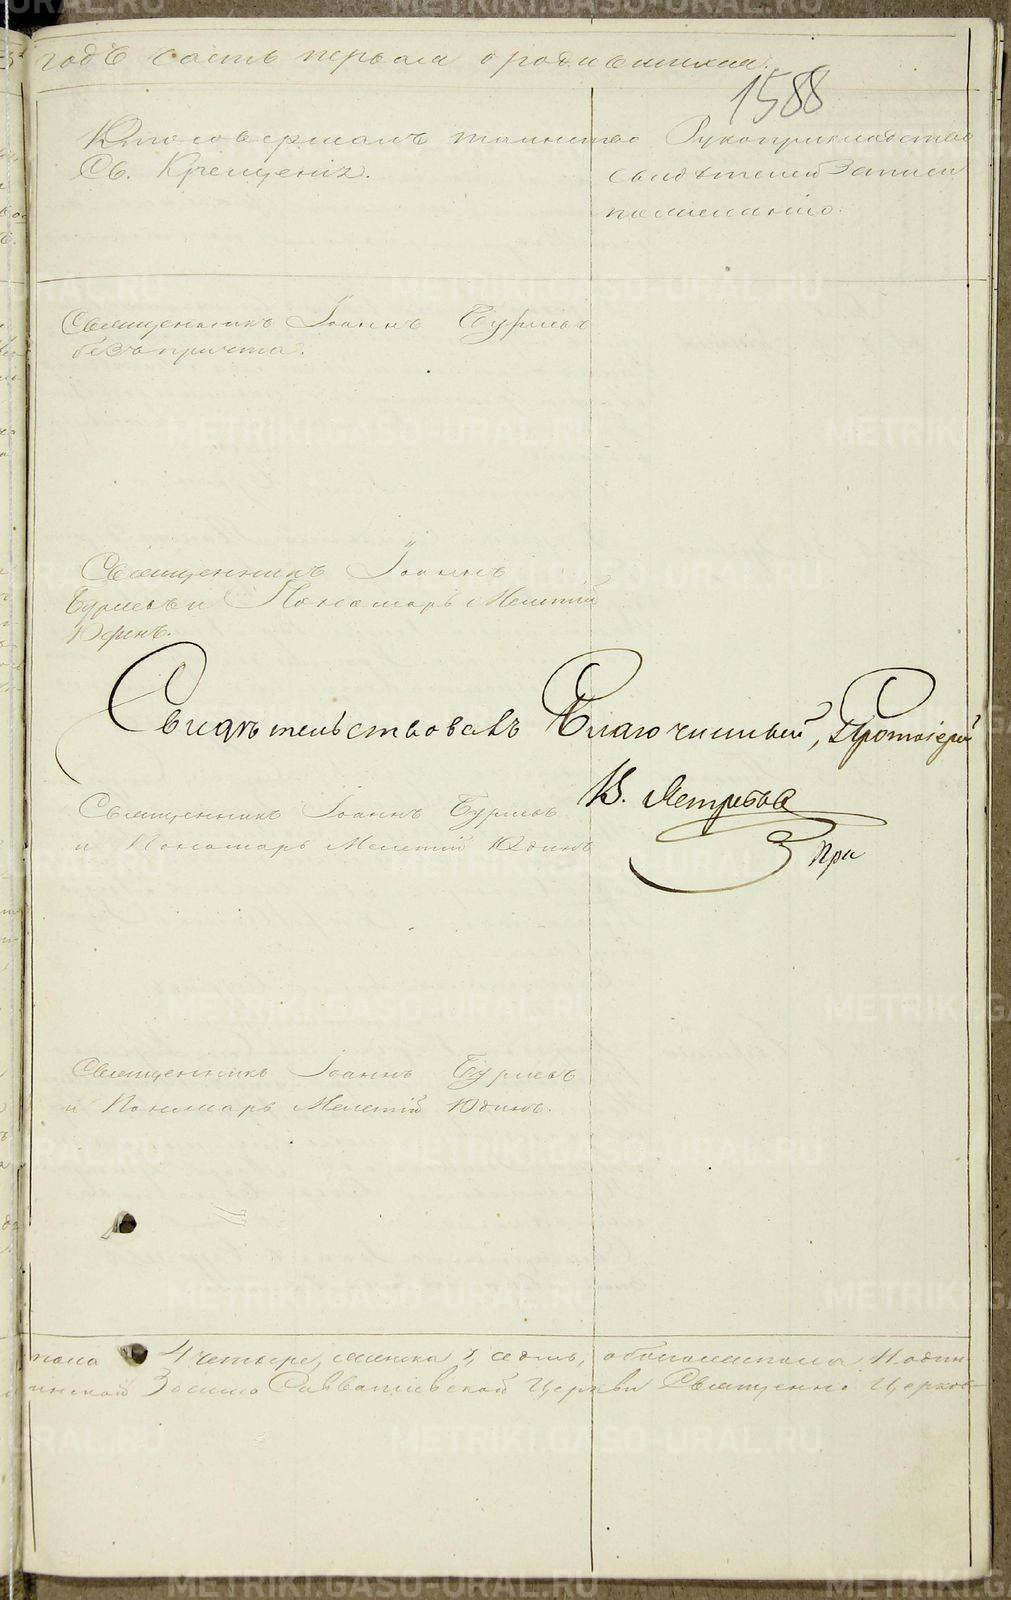 годъ часть первая о родившихся.
1588
Кто совершалъ таинство
Св. Крещенія.
Рукоприкладство
свидѣтелей записи
по желанію.
Священникъ Іоаннъ Бурмевъ
безъ причта.
Священникъ Іоаннъ
Бурмевъ и Пономарь Мелетій
Юдинъ.
Свидѣтельствовалъ Благочинный, Протоіерей
В. Ястребовъ
При
Священникъ Іоаннъ Бурмевъ
и Пономарь Мелетій Юдинъ
Священникъ Іоаннъ Бурмевъ
и Пономарь Мелетій Юдинъ.
пола 4 четыре, женска 7, седмь, обоего пола 11 один-
инской Зосимо Савватіевской Церкви Священно Церков-
METRIKI.GASO-URAL.RU